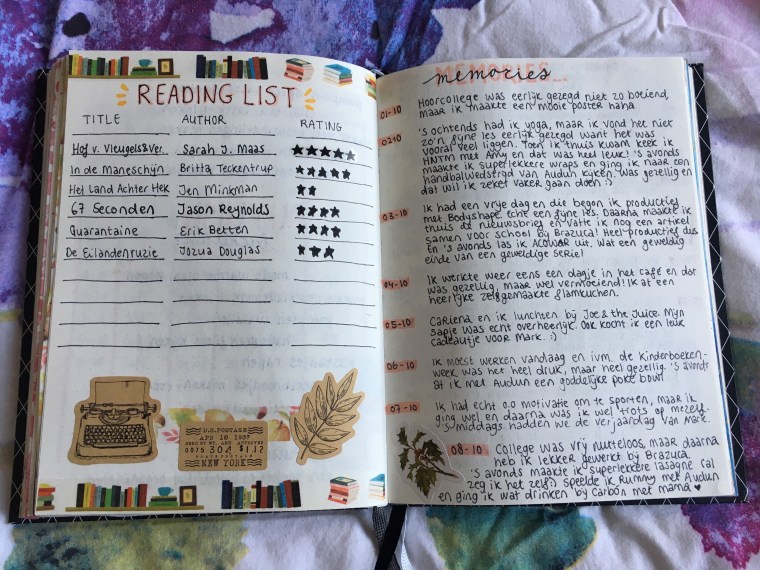 READING LIST
TITLE AUTHOR RATING
Hof v. Vleugels&Ver. Sarah J. Maas
In de Maneschijn Britta Teckentrup
Het Land Achter Hek Jen Minkman
67 Seconden Jason Reynolds
Quarantaine Erik Betten
De Eilandenruzie Jozua Douglas
U.S. POSTAGE
APR 10 1937
0075 304 $1.12
NEW YORK
MEMORIES...
memories
01-10 Hoorcollege was eerlijk gezegd niet zo boeiend,
maar ik maakte een mooie poster haha
02-10 's ochtends had ik yoga, maar ik vond het niet
zo'n fijne les eerlijk gezegd want het was
vooral veel liggen. Toen ik thuis kwam keek ik
HNTM met Amy en dat was heel leuk! 's avonds
maakte ik superlekkere wraps en ging ik naar een
handbalwedstrijd van Audun kijken. Was gezellig en
dat wil ik zeker vaker gaan doen :)
03-10 Ik had een vrije dag en die begon ik productief
met Bodyshape echt een fijne les. Daarna maakte ik
thuis de nieuwsbrief en vatte ik nog een artikel
samen voor school bij Brazuca! Heel productief dus
En 's avonds las ik ACOWAR uit. Wat een geweldig
einde van een geweldige serie!
04-10 Ik werkte weer eens een dagje in het café en dat
was gezellig, maar wel vermoeiend! Ik at een
heerlijke zelfgemaakte flamkuchen.
05-10 Cariena en ik lunchten bij Joe & the Juice. Mijn
sapje was echt overheerlijk. Ook kocht ik een leuk
cadeautje voor Mark. :)
06-10 Ik moest werken vandaag en ivm. de Kinderboeken-
week was het heel druk, maar heel gezellig. 's avonds
at ik met Audun een goddelijke poké bowl
07-10 Ik had echt 0.0 motivatie om te sporten, maar ik
ging wel en daarna was ik wel trots op mezelf.
's middags hadden we de verjaardag van Marc.
08-10 College was vrij nutteloos, maar daarna
heb ik lekker gewerkt bij Brazuca.
's avonds maakte ik superlekkere lasagne (al
zeg ik het zelf:) Speelde ik Rummy met Audun
en ging ik wat drinken bij Carbón met mama ♥